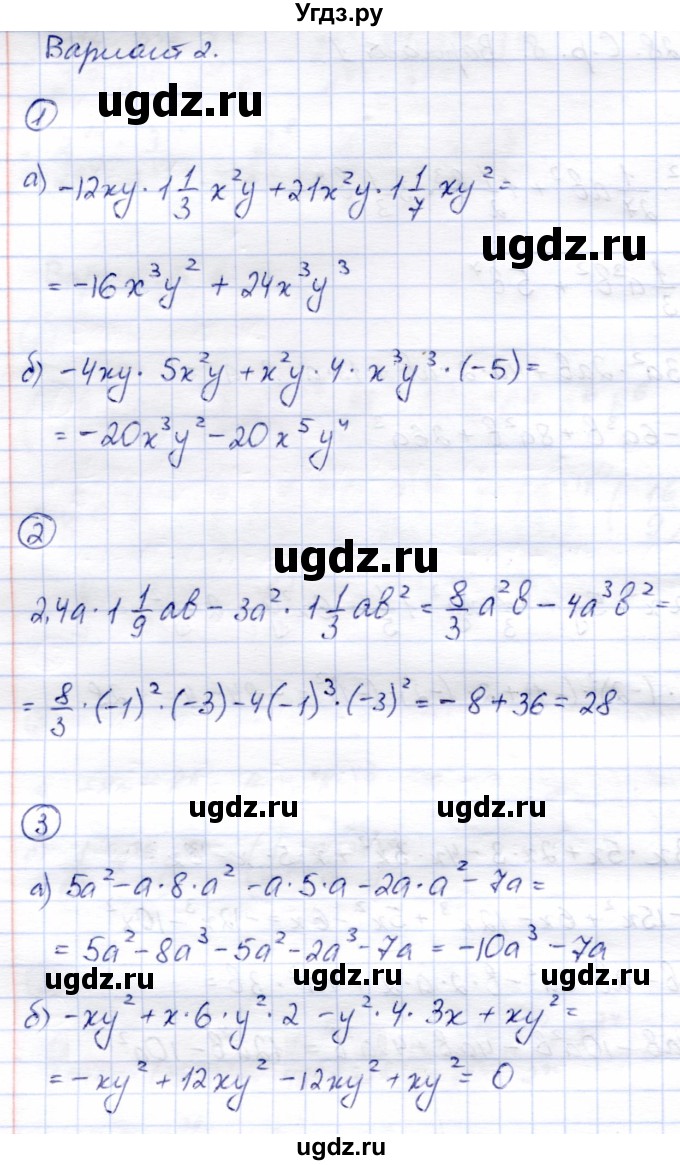 Угдз.ру
Вариант 2.
ugdz.ru
1
а) -12xy · 1 1/3 x²y + 21x²y · 1 1/7 xy² =
ugdz.ru
= -16x³y² + 24x³y³
б) -4xy · 5x²y + x²y · 4 · x³y³ · (-5) =
= -20x³y² - 20x⁵y⁴
2
ugdz.ru
2,4a · 1 1/9 ab - 3a² · 1 1/3 ab² = 8/3 a²b - 4a³b² =
= 8/3 · (-1)² · (-3) - 4(-1)³ · (-3)² = -8 + 36 = 28
3
ugdz.ru ugdz.ru
а) 5a² - a · 8 · a² - a · 5 · a - 2a · a² - 7a =
= 5a² - 8a³ - 5a² - 2a³ - 7a = -10a³ - 7a
ugdz.ru ugdz.ru
б) -xy² + x · 6 · y² · 2 - y² · 4 · 3x + xy² =
= -xy² + 12xy² - 12xy² + xy² = 0
ugdz.ru